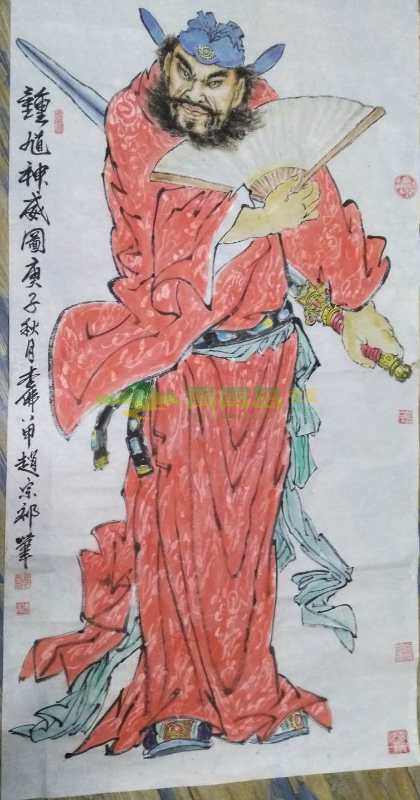 鍾馗神威圖庚子秋月八甲趙宗祁筆